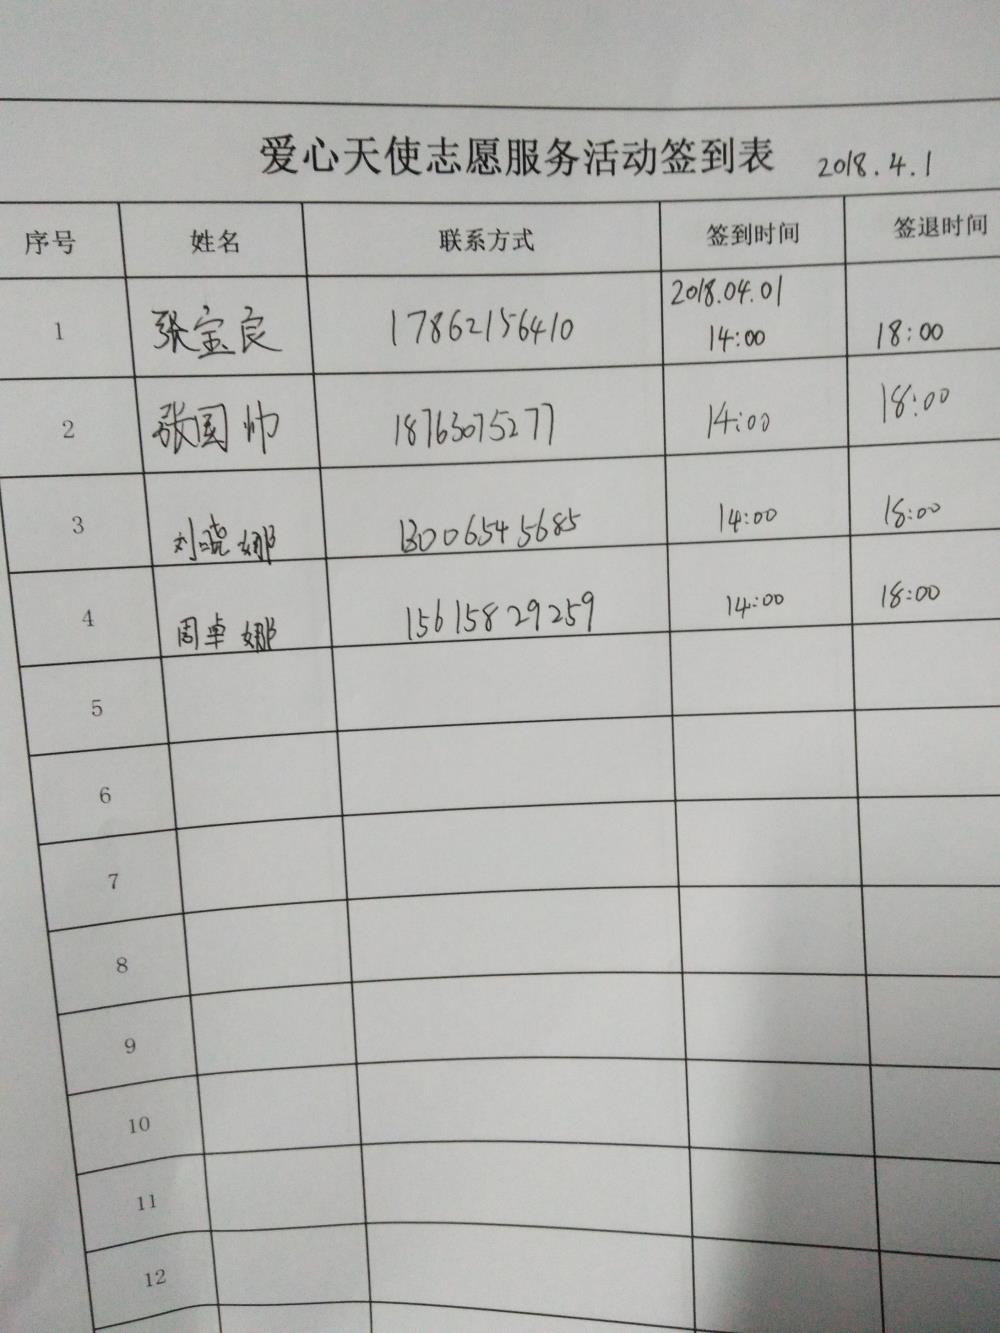 爱心天使志愿服务活动签到表 2018.4.1
序号 姓名 联系方式 签到时间 签退时间
2018.04.01
1 张宝良 17862156410 14:00 18:00
2 张国帅 18763075277 14:00 18:00
3 刘晓娜 13006545685 14:00 18:00
4 周卓娜 15615829259 14:00 18:00
5
6
7
8
9
10
11
12